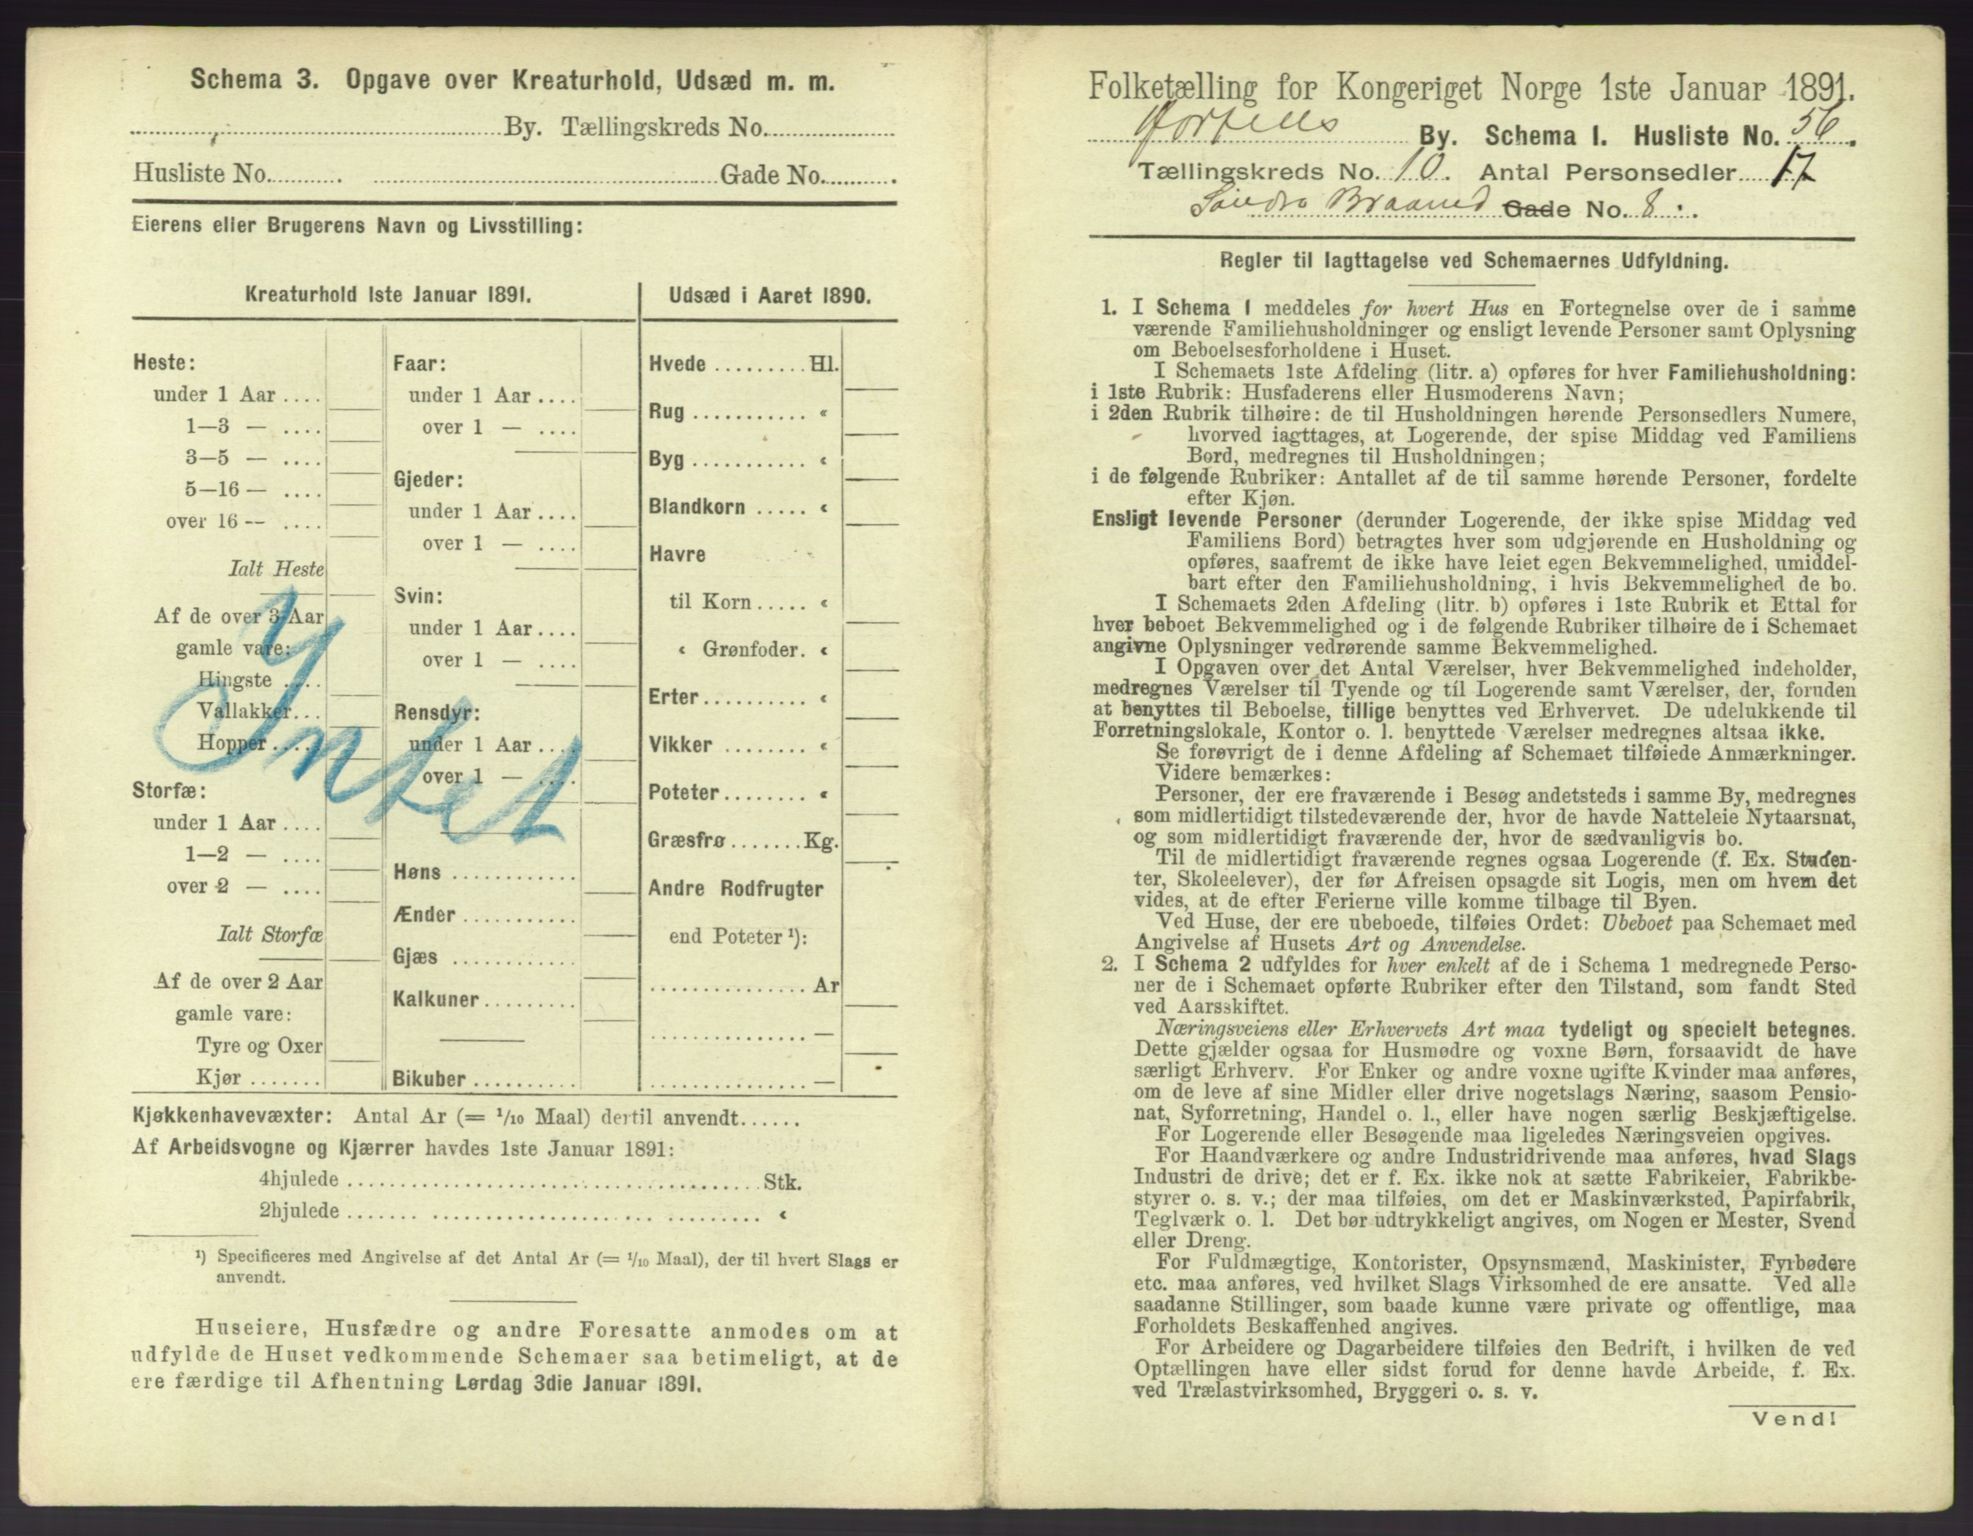 Schema 3. Opgave over Kreaturhold, Udsæd m. m.
By. Tællingskreds No.
Husliste No. Gade No.
Eierens eller Brugerens Navn og Livsstilling:
Kreaturhold 1ste Januar 1891.
Heste:
under 1 Aar
1—3 —
3—5 —
5—16 —
over 16 —
Ialt Heste
Af de over 3 Aar
gamle vare:
Hingste
Vallakker
Hopper
Storfæ:
under 1 Aar
1—2 —
over 2 —
Ialt Storfæ
Af de over 2 Aar
gamle vare:
Tyre og Oxer
Kjør
Faar:
under 1 Aar
over 1 —
Gjeder:
under 1 Aar
over 1 —
Svin:
under 1 Aar
over 1 —
Rensdyr:
under 1 Aar
over 1 —
Høns
Ænder
Gjæs
Kalkuner
Bikuber
Intet
Udsæd i Aaret 1890.
Hvede Hl.
Rug «
Byg «
Blandkorn «
Havre
til Korn «
« Grønfoder. «
Erter «
Vikker «
Poteter «
Græsfrø Kg.
Andre Rodfrugter
end Poteter ¹):
Ar
—
—
Kjøkkenhavevæxter: Antal Ar (= 1/10 Maal) dertil anvendt
Af Arbeidsvogne og Kjærrer havdes 1ste Januar 1891:
4hjulede Stk.
2hjulede «
¹) Specificeres med Angivelse af det Antal Ar (= 1/10 Maal), der til hvert Slags er
anvendt.
Huseiere, Husfædre og andre Foresatte anmodes om at
udfylde de Huset vedkommende Schemaer saa betimeligt, at de
ere færdige til Afhentning Lørdag 3die Januar 1891.
Folketælling for Kongeriget Norge 1ste Januar 1891.
Hortens By. Schema 1. Husliste No. 56.
Tællingskreds No. 10. Antal Personsedler 17
Søndre Braarud Gade No. 8.
Regler til Iagttagelse ved Schemaernes Udfyldning.
1. I Schema 1 meddeles for hvert Hus en Fortegnelse over de i samme
værende Familiehusholdninger og ensligt levende Personer samt Oplysning
om Beboelsesforholdene i Huset.
I Schemaets 1ste Afdeling (litr. a) opføres for hver Familiehusholdning:
i 1ste Rubrik: Husfaderens eller Husmoderens Navn;
i 2den Rubrik tilhøire: de til Husholdningen hørende Personsedlers Numere,
hvorved iagttages, at Logerende, der spise Middag ved Familiens
Bord, medregnes til Husholdningen;
i de følgende Rubriker: Antallet af de til samme hørende Personer, fordelte
efter Kjøn.
Ensligt levende Personer (derunder Logerende, der ikke spise Middag ved
Familiens Bord) betragtes hver som udgjørende en Husholdning og
opføres, saafremt de ikke have leiet egen Bekvemmelighed, umiddel-
bart efter den Familiehusholdning, i hvis Bekvemmelighed de bo.
I Schemaets 2den Afdeling (litr. b) opføres i 1ste Rubrik et Ettal for
hver beboet Bekvemmelighed og i de følgende Rubriker tilhøire de i Schemaet
angivne Oplysninger vedrørende samme Bekvemmelighed.
I Opgaven over det Antal Værelser, hver Bekvemmelighed indeholder,
medregnes Værelser til Tyende og til Logerende samt Værelser, der, foruden
at benyttes til Beboelse, tillige benyttes ved Erhvervet. De udelukkende til
Forretningslokale, Kontor o. l. benyttede Værelser medregnes altsaa ikke.
Se forøvrigt de i denne Afdeling af Schemaet tilføiede Anmærkninger.
Videre bemærkes:
Personer, der ere fraværende i Besøg andetsteds i samme By, medregnes
som midlertidigt tilstedeværende der, hvor de havde Natteleie Nytaarsnat,
og som midlertidigt fraværende der, hvor de sædvanligvis bo.
Til de midlertidigt fraværende regnes ogsaa Logerende (f. Ex. Studen-
ter, Skoleelever), der før Afreisen opsagde sit Logis, men om hvem det
vides, at de efter Ferierne ville komme tilbage til Byen.
Ved Huse, der ere ubeboede, tilføies Ordet: Ubeboet paa Schemaet med
Angivelse af Husets Art og Anvendelse.
2. I Schema 2 udfyldes for hver enkelt af de i Schema 1 medregnede Perso-
ner de i Schemaet opførte Rubriker efter den Tilstand, som fandt Sted
ved Aarsskiftet.
Næringsveiens eller Erhvervets Art maa tydeligt og specielt betegnes.
Dette gjælder ogsaa for Husmødre og voxne Børn, forsaavidt de have
særligt Erhverv. For Enker og andre voxne ugifte Kvinder maa anføres,
om de leve af sine Midler eller drive nogetslags Næring, saasom Pensio-
nat, Syforretning, Handel o. l., eller have nogen særlig Beskjæftigelse.
For Logerende eller Besøgende maa ligeledes Næringsveien opgives.
For Haandværkere og andre Industridrivende maa anføres, hvad Slags
Industri de drive; det er f. Ex. ikke nok at sætte Fabrikeier, Fabrikbe-
styrer o. s. v.; der maa tilføies, om det er Maskinværksted, Papirfabrik,
Teglværk o. l. Det bør udtrykkeligt angives, om Nogen er Mester, Svend
eller Dreng.
For Fuldmægtige, Kontorister, Opsynsmænd, Maskinister, Fyrbødere
etc. maa anføres, ved hvilket Slags Virksomhed de ere ansatte. Ved alle
saadanne Stillinger, som baade kunne være private og offentlige, maa
Forholdets Beskaffenhed angives.
For Arbeidere og Dagarbeidere tilføies den Bedrift, i hvilken de ved
Optællingen have eller sidst forud for denne havde Arbeide, f. Ex.
ved Trælastvirksomhed, Bryggeri o. s. v.
Vend!